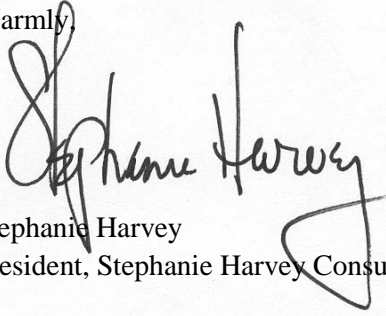 armly,
Stephanie Harvey
ephanie Harvey
esident, Stephanie Harvey Consu